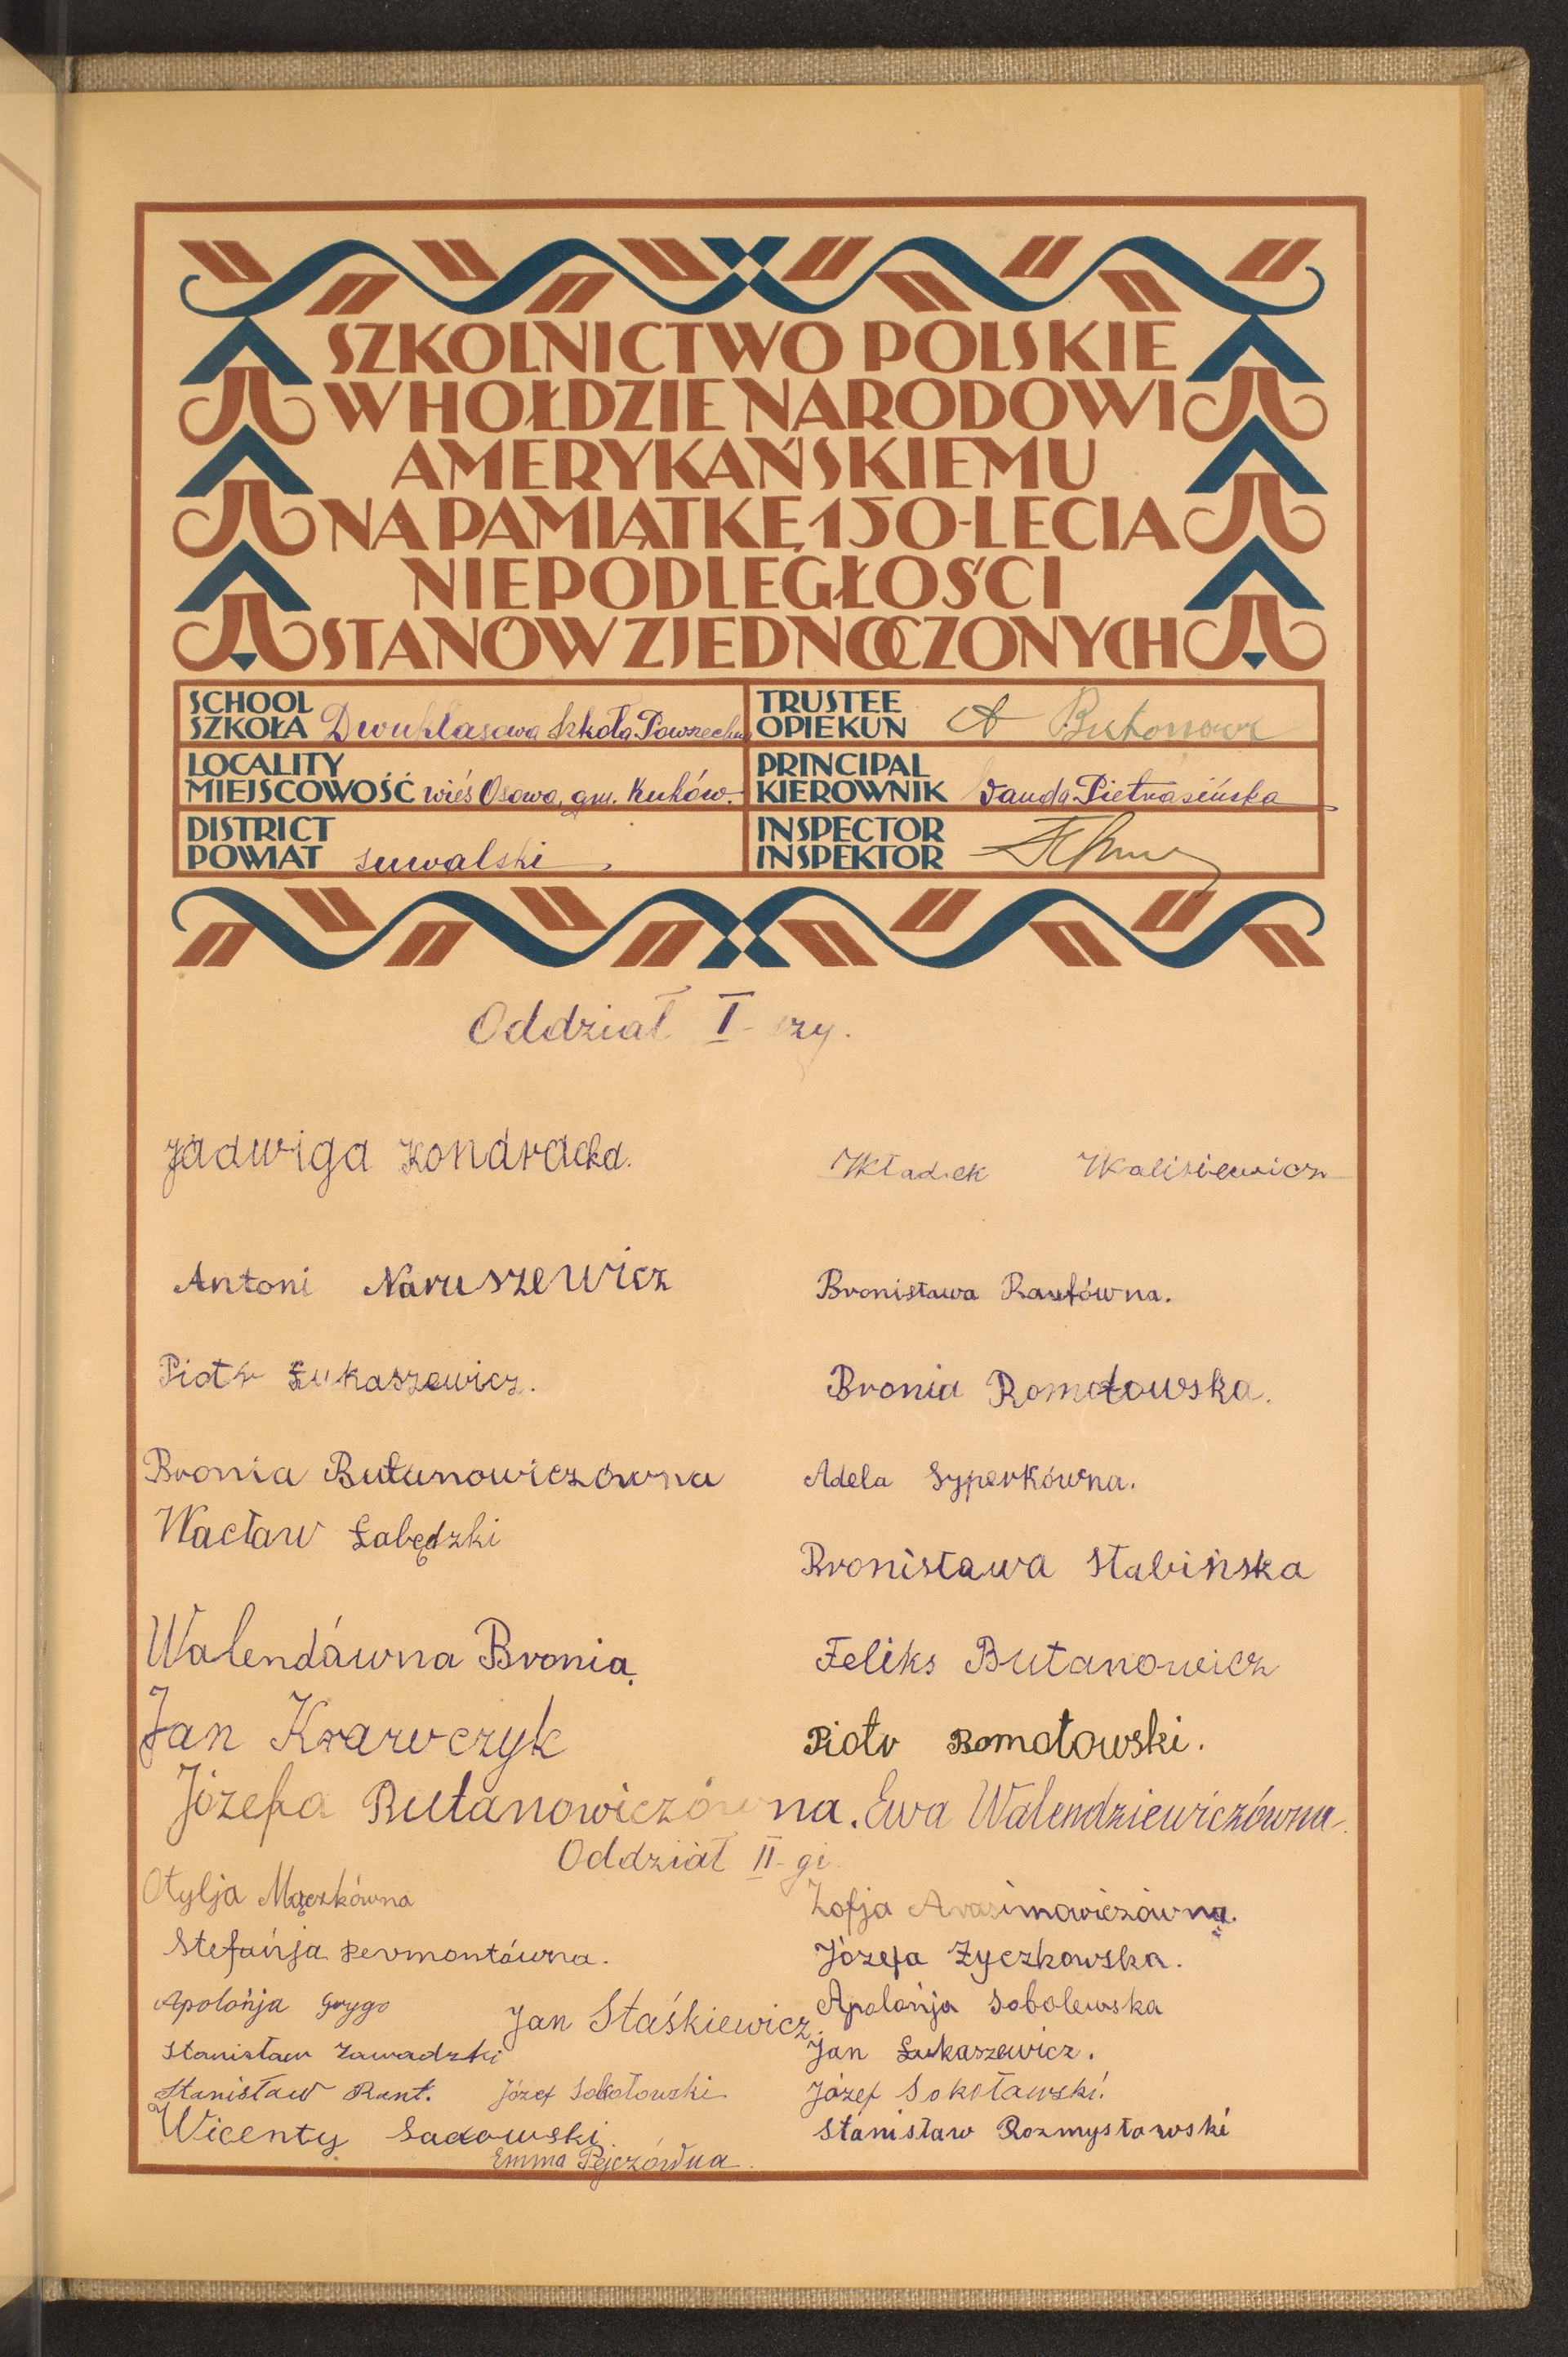 SZKOLNICTWO POLSKIE
W HOŁDZIE NARODOWI
AMERYKAŃSKIEMU
NA PAMIĄTKĘ 150-LECIA
NIEPODLEGŁOŚCI
STANÓW ZJEDNOCZONYCH
SCHOOL
SZKOŁA Dwuklasowa Szkoła Powszechna
TRUSTEE
OPIEKUN
LOCALITY
MIEJSCOWOŚĆ wieś Osowa, gm. Kuków.
PRINCIPAL
KIEROWNIK Wanda Pietrasińska
DISTRICT
POWIAT suwalski
INSPECTOR
INSPEKTOR
Oddział I-szy.
Jadwiga Kondracka.
Władek Walisiewicz
Antoni Naruszewicz
Bronisława Rantówna.
Piotr Łukaszewicz.
Bronia Romotowska.
Bronia Butanowiczówna
Adela Syperkówna.
Wacław Łabędzki
Bronisława Słabińska
Walendówna Bronia
Feliks Butanowicz
Jan Krawczyk
Piotr Romotowski.
Józefa Butanowiczówna. Ewa Walendziewiczówna.
Oddział II-gi
Otylja Mączkówna
Zofja Arasimowiczówna.
Stefańja Dermontówna.
Józefa Życzkowska.
Apolońja Grygo
Jan Staśkiewicz.
Apolońja Sobolewska
Stanisław Zawadzki
Jan Łukaszewicz.
Stanisław Rant. Józef Sokołowski
Józef Sokoławski.
Wicenty Sadowski
Stanisław Rozmysłowski
Emma Pejczówna.